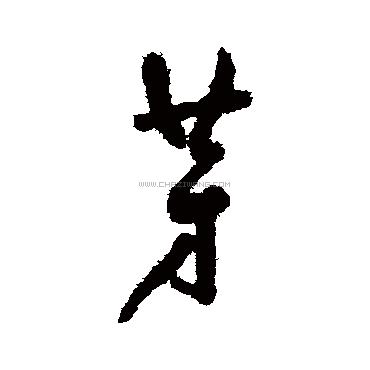 芽
WWW.CHAZIWANG.COM